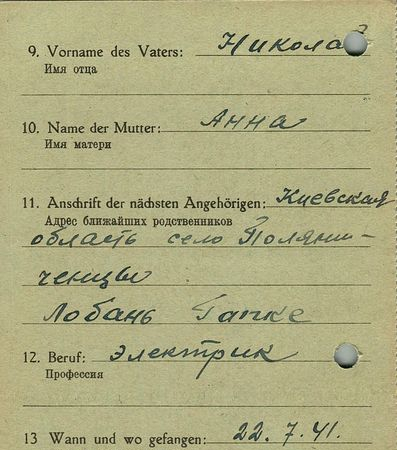 9. Vorname des Vaters: Николай
Имя отца
10. Name der Mutter: Анна
Имя матери
11. Anschrift der nächsten Angehörigen: Киевская
Адрес ближайших родственников
область село Поляни-
ченцы
Лобань Гапке
12. Beruf: электрик
Профессия
13 Wann und wo gefangen: 22. 7. 41.